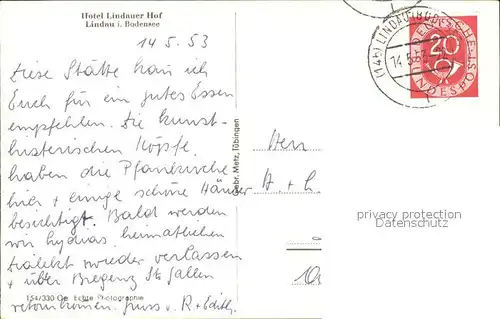 Hotel Lindauer Hof
Lindau i. Bodensee
14.5.53
Diese Stätte kann ich
Euch für ein gutes Essen
empfehlen. Die kunst-
historischen Köpfe
haben die Pfarrkirche
hier + einige schöne Häuser
besichtigt. Bald werden
wir heimatlichen
Dialekt wieder verlassen
+ über Bregenz St. Gallen
retour kommen. Gruss v. R + Edith
154/330 Echte Photographie
Gebr. Metz, Tübingen
Herr
H. + L.
(14b) LINDAU (BOD
14.5.
DEUTSCHE BUNDESPOST
20
privacy protection
Datenschutz